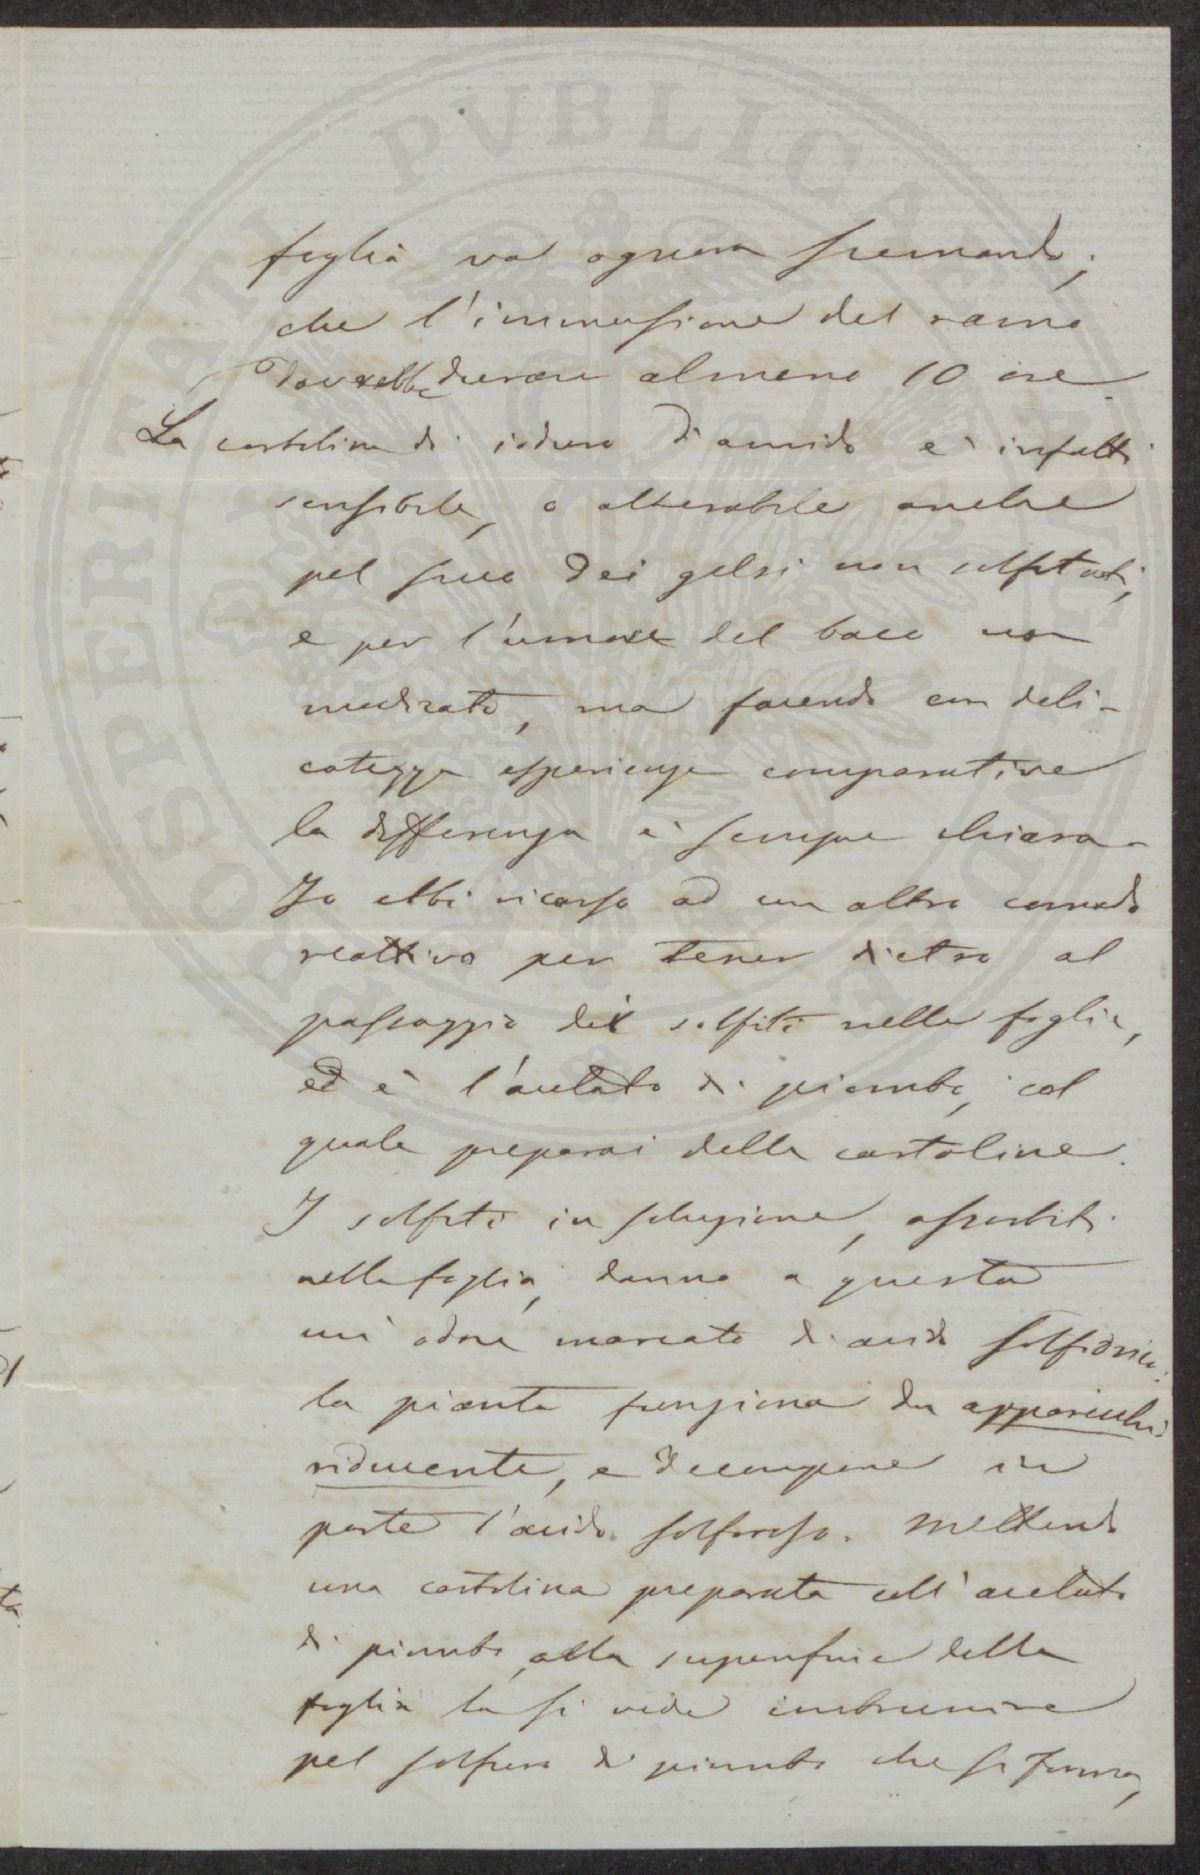 foglia va ognora scemando;
che l'immersione del ramo
dovrebbe durare almeno 10 ore.
La cartolina di ioduro d'amido è infatti
sensibile, o alterabile anche
pel succo dei gelsi non solfitati,
e per l'umore del baco non
medicato, ma facendo con deli-
catezza esperienze comparative
la differenza è sempre chiara.
Io ebbi ricorso ad un altro comodo
reattivo per tener dietro al
passaggio dei solfiti nelle foglie,
ed è l'acetato di piombo, col
quale preparai delle cartoline.
I solfiti in soluzione, assorbiti
nella foglia, danno a questa
un' odore marcato di acido solfidrico:
la pianta funziona da apparecchio
riducente, e decompone in
parte l'acido solforoso. Mettendo
una cartolina preparata coll'acetato
di piombo alla superficie della
foglia la si vede imbrunire
pel solfuro di piombo che si forma,
PROSPERITATI PVBLICAE AVGENDAE